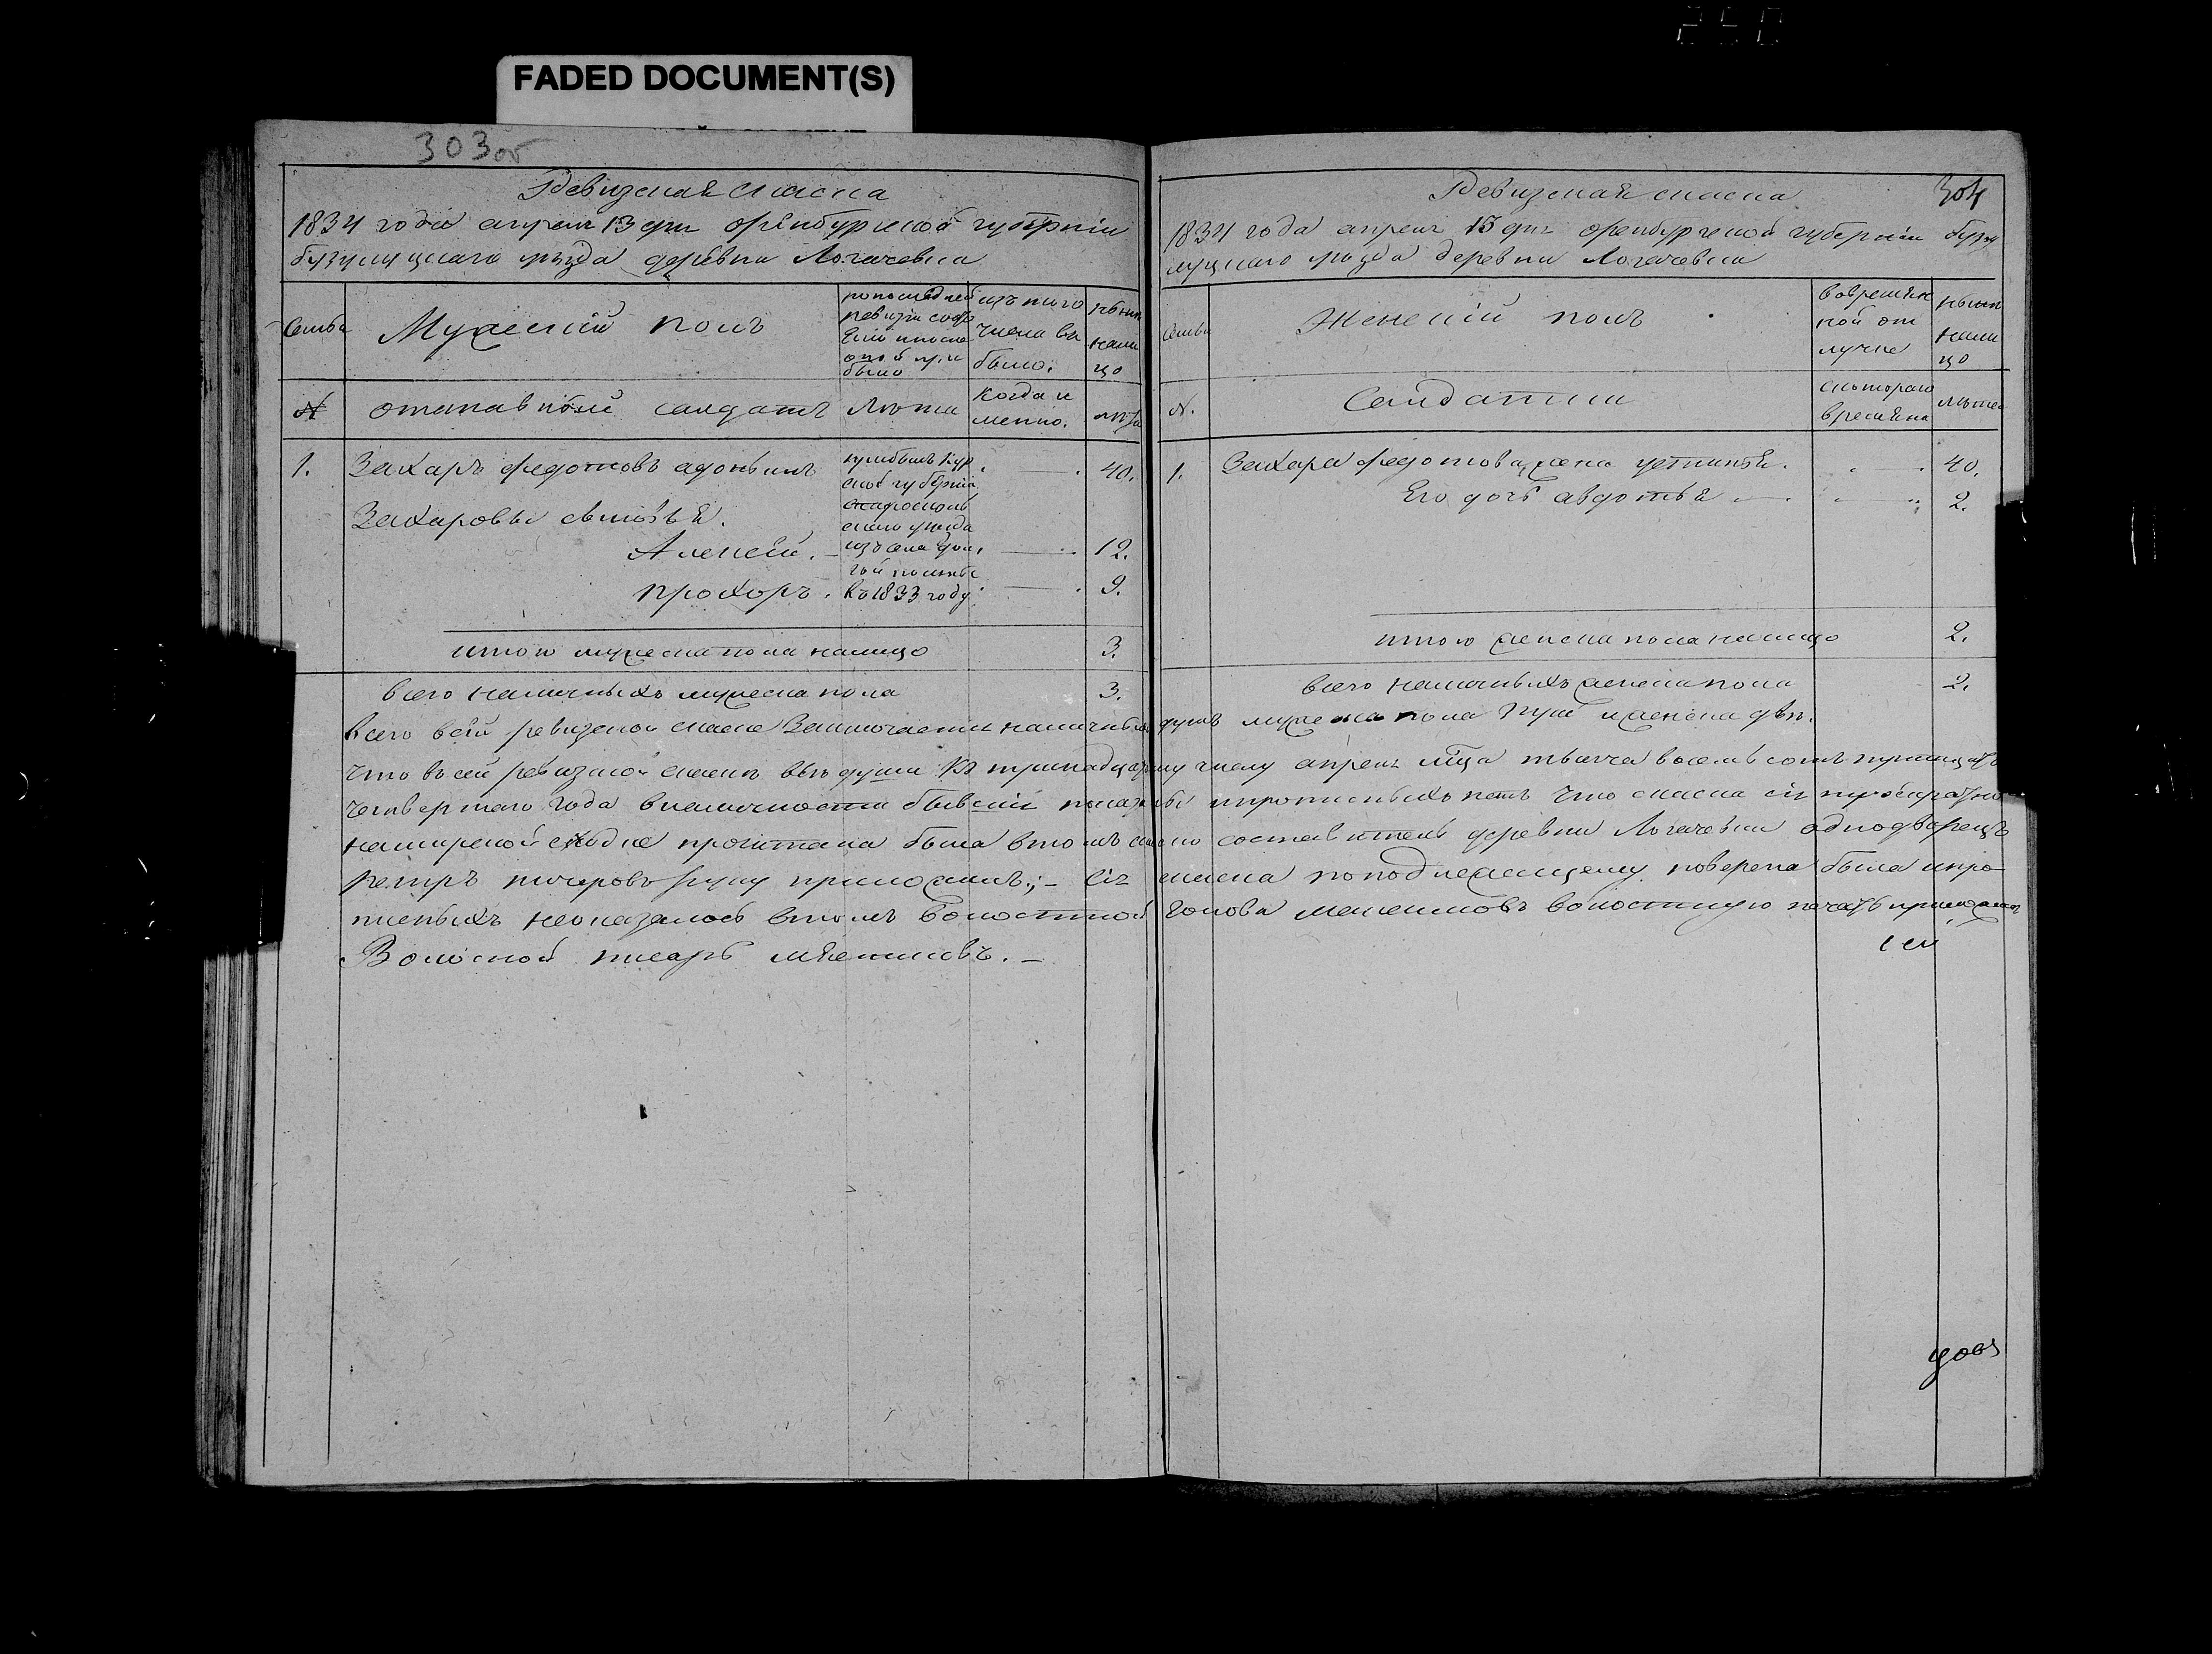 FADED DOCUMENT(S)
303об
Ревизская скаска
1834 года апреля 13 дня оренбургской губернии
бузулуцкаго уезда деревни Логачевки
Семьи
Мужеский полъ
по последней
ревизи состо
яло и после
оной при
было
изъ того
числа вы
было.
ныне
нали
цо
№
отставной салдатъ
лета
когда и
менно.
лета
1. Захаръ федотовъ адоньинъ
прибылъ Кур
ской губернии
старооскол
скаго уезда
изъ села
въ 1833 году
40.
Захаровы сыновья.
Алексей.
12.
прохоръ.
9.
итого мужеска пола налицо
3.
всего наличныхъ мужеска пола
3.
304
Ревизская скаска
1834 года апреля 13 дня оренбургской губернии бузу
луцкаго уезда деревни Логачевки
Семьи
Женский полъ
во времян
ной от
лучке
ныне
нали
цо
№.
Салдатки
с котораго
времяни
лета
1. Захара федотова жена устинья.
40.
Его дочь авдотья
2.
итого женска пола налицо
2.
всего наличныхъ женска пола
2.
всего всей ревизской скаске заключается наличныхъ душъ мужеска пола три и женска две.
Что въ сей ревизской скаске все души къ тринадцатому числу апреля мца тысеча восемь сотъ тритцать
четвертаго года вналичности бывшии показаны и прописныхъ нетъ что скаска сия при собрании
на мирской сходке прочитана была втомъ составитель деревни Логачевки однодворецъ
петръ руку приложилъ; - сия скаска по подлежащему поверена была и про
писныхъ не оказалось втомъ Волостной голова волостную печать приложилъ
Волосной писарь